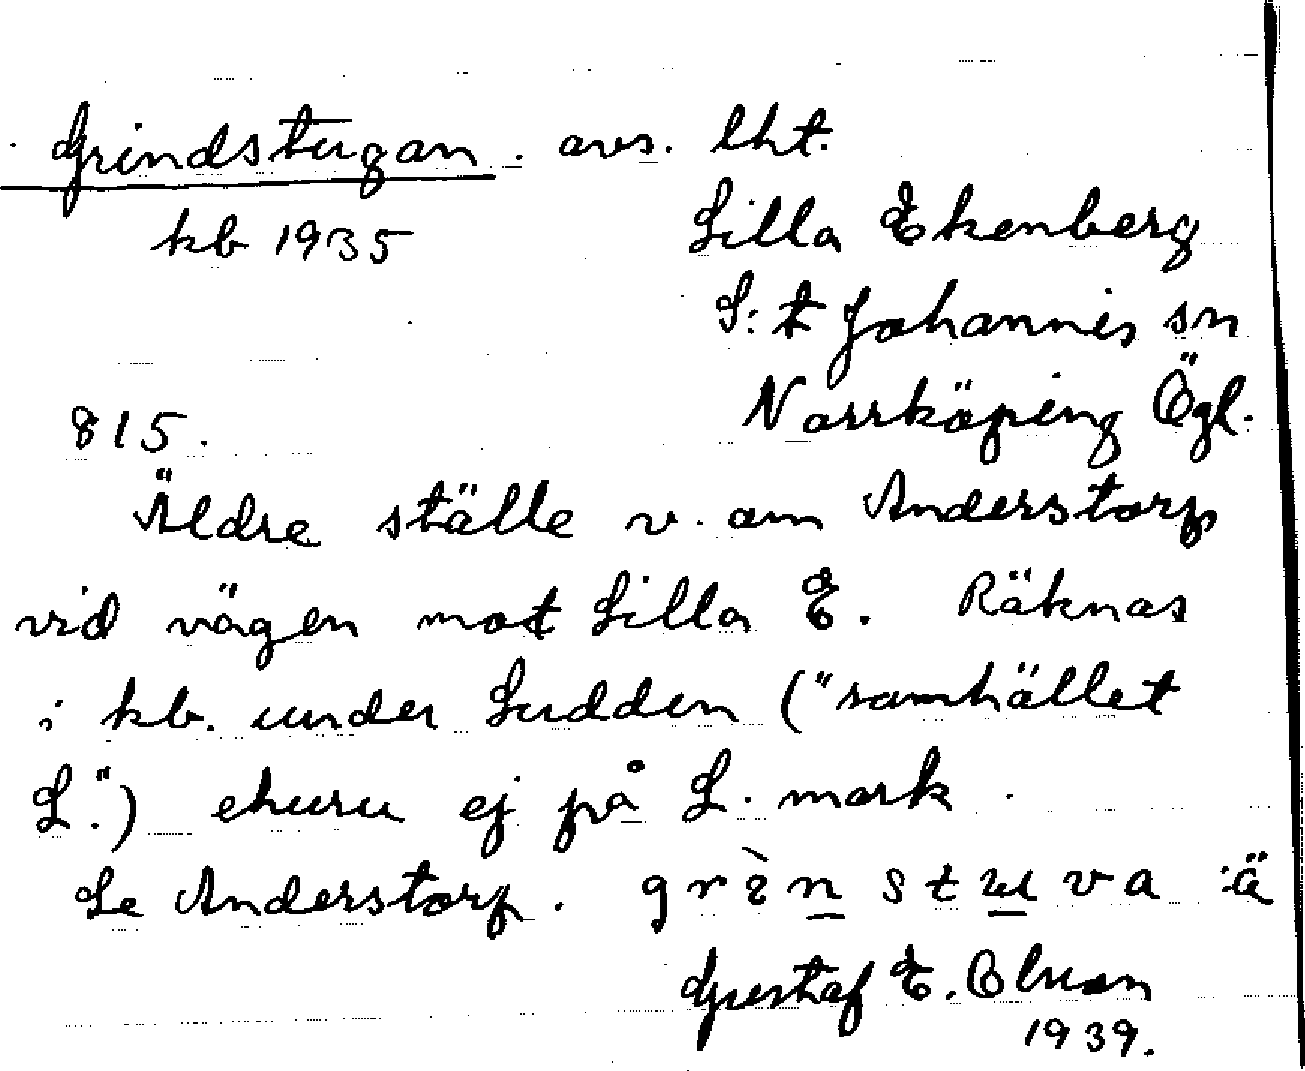 Grindstugan. avs. lht.
kb 1935
Lilla Ekenberg
S:t Johannis sn
Norrköping Ögl.
815.
Äldre ställe v. om Anderstorp
vid vägen mot Lilla E. Räknas
i kb. under Ludden ("samhället
L.") ehuru ej på L. mark.
Se Anderstorp. grìnstuva ä
Gustaf E.
1939.